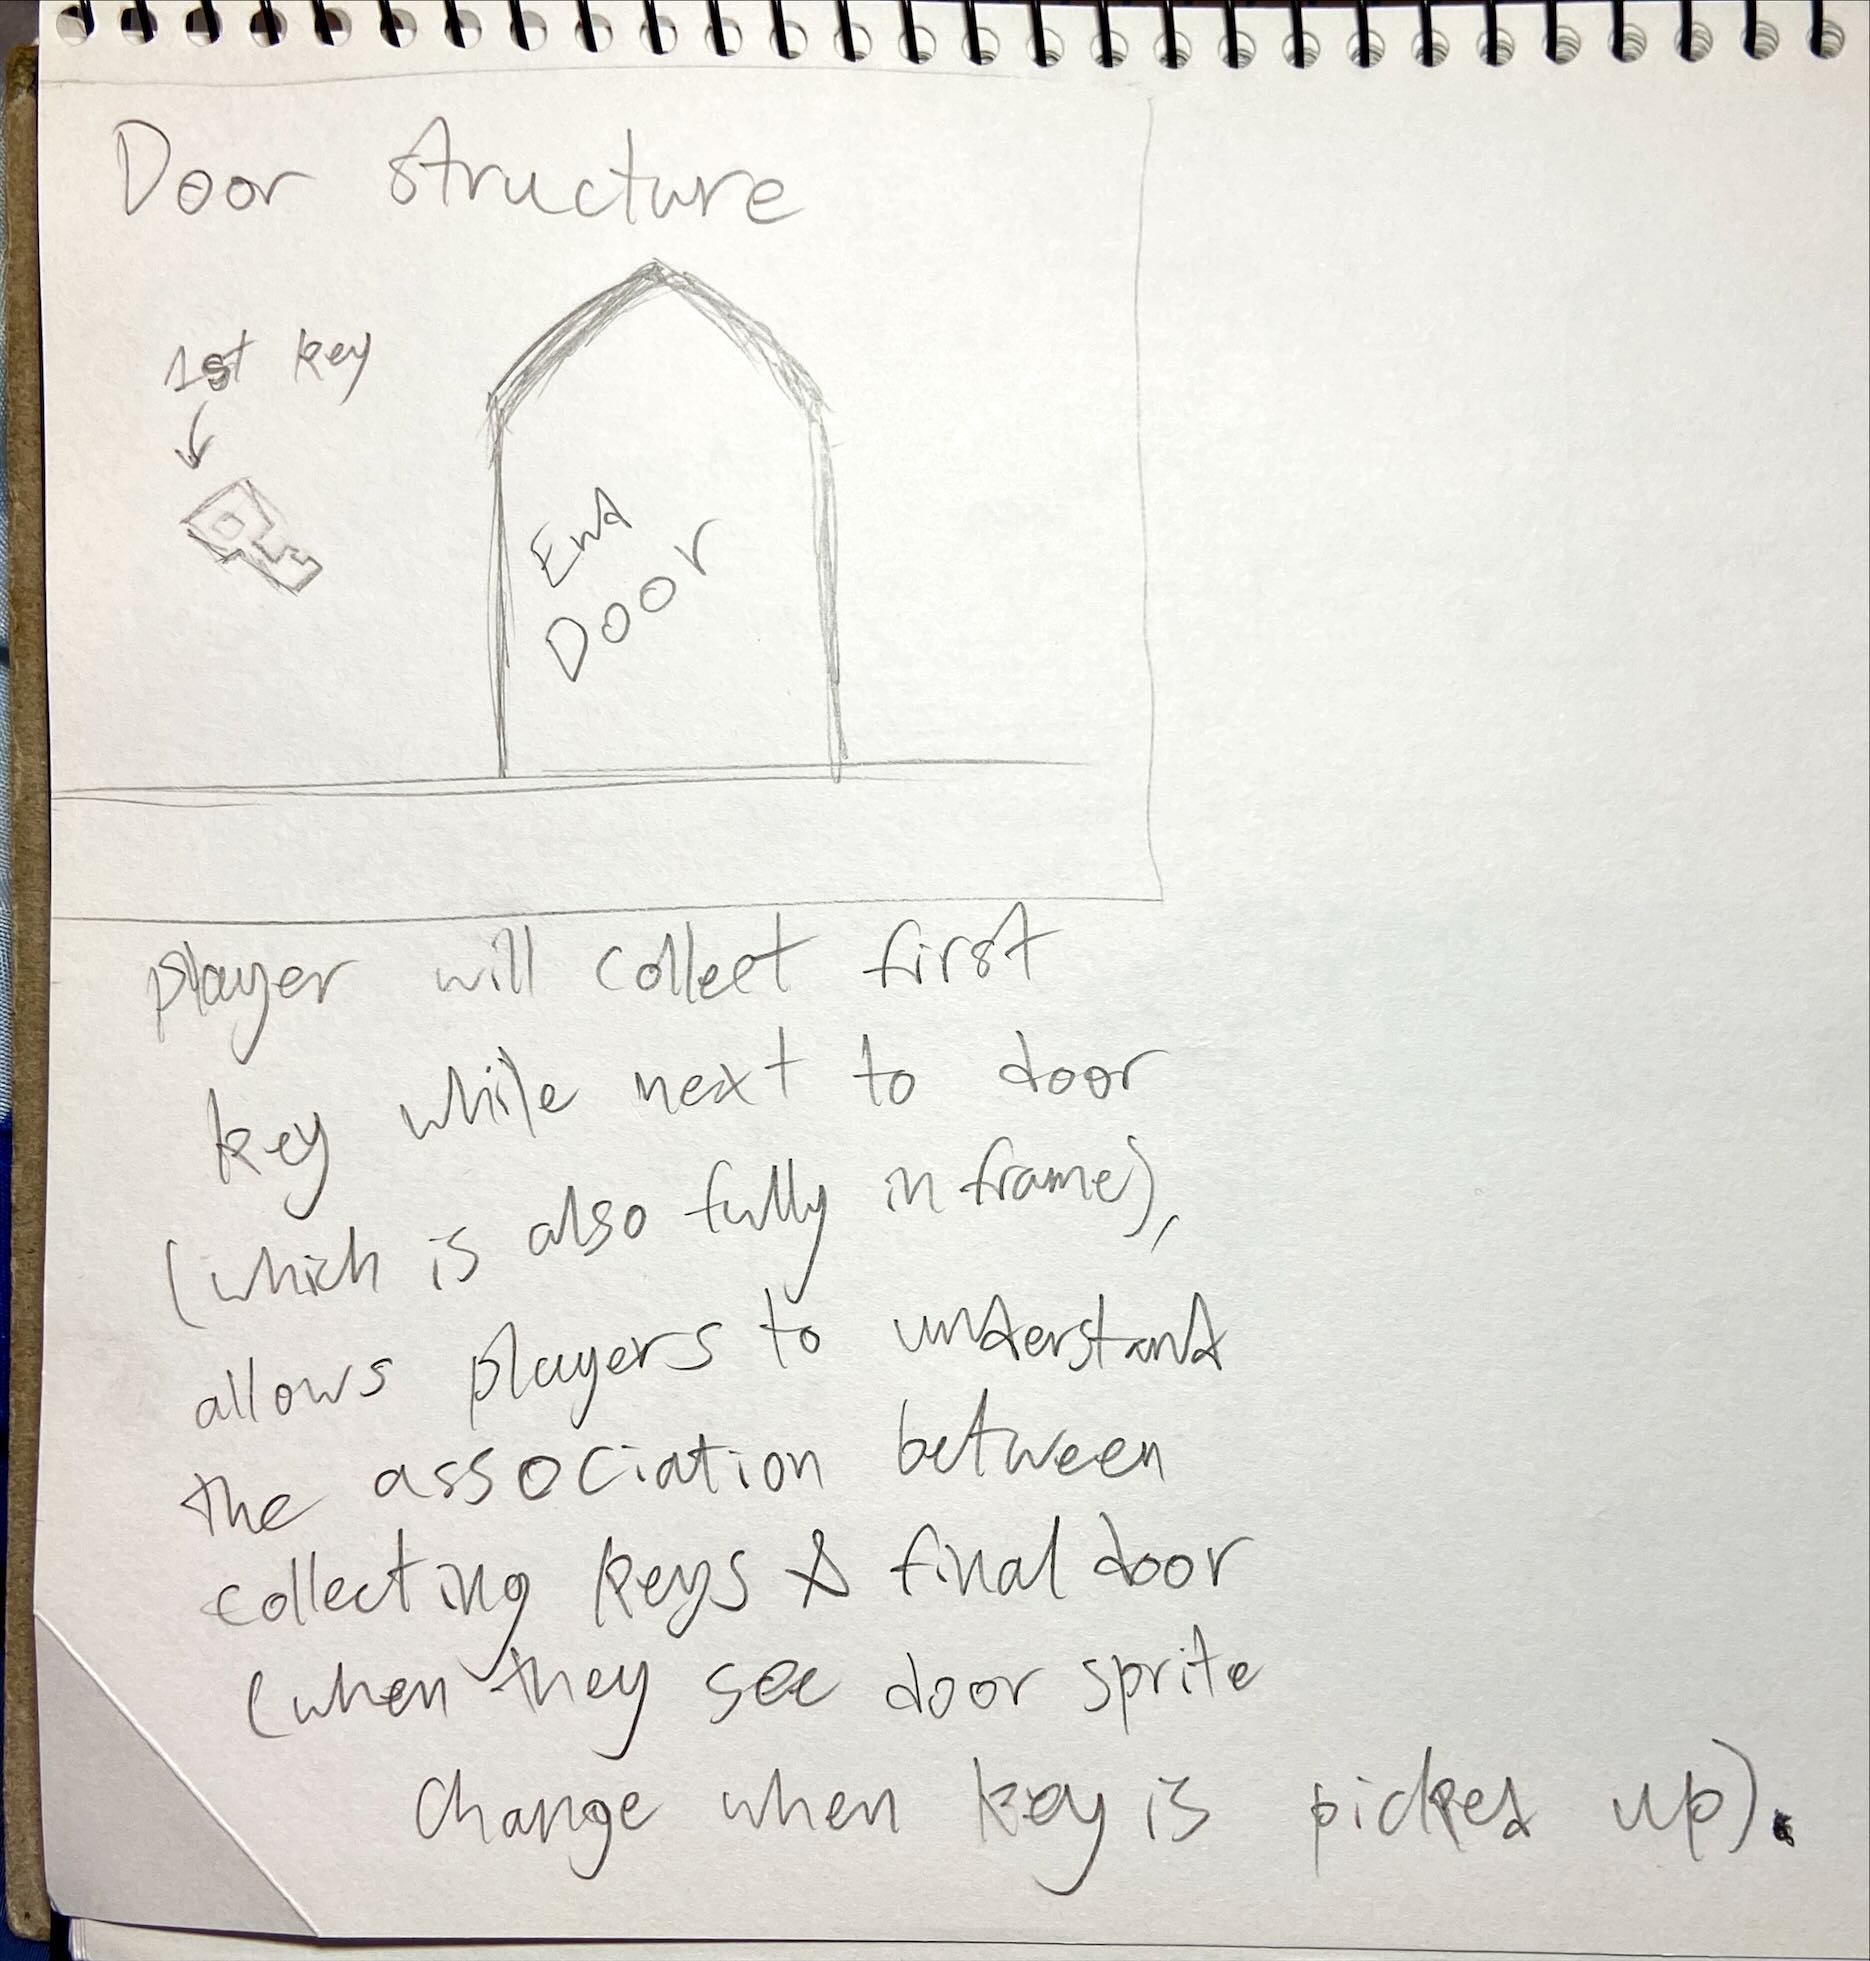 Door structure
1st key
End
Door
player will collect first
key while next to door
(which is also fully in frame),
allows players to understand
the association between
collecting keys & final door
(when they see door sprite
change when key is picked up).